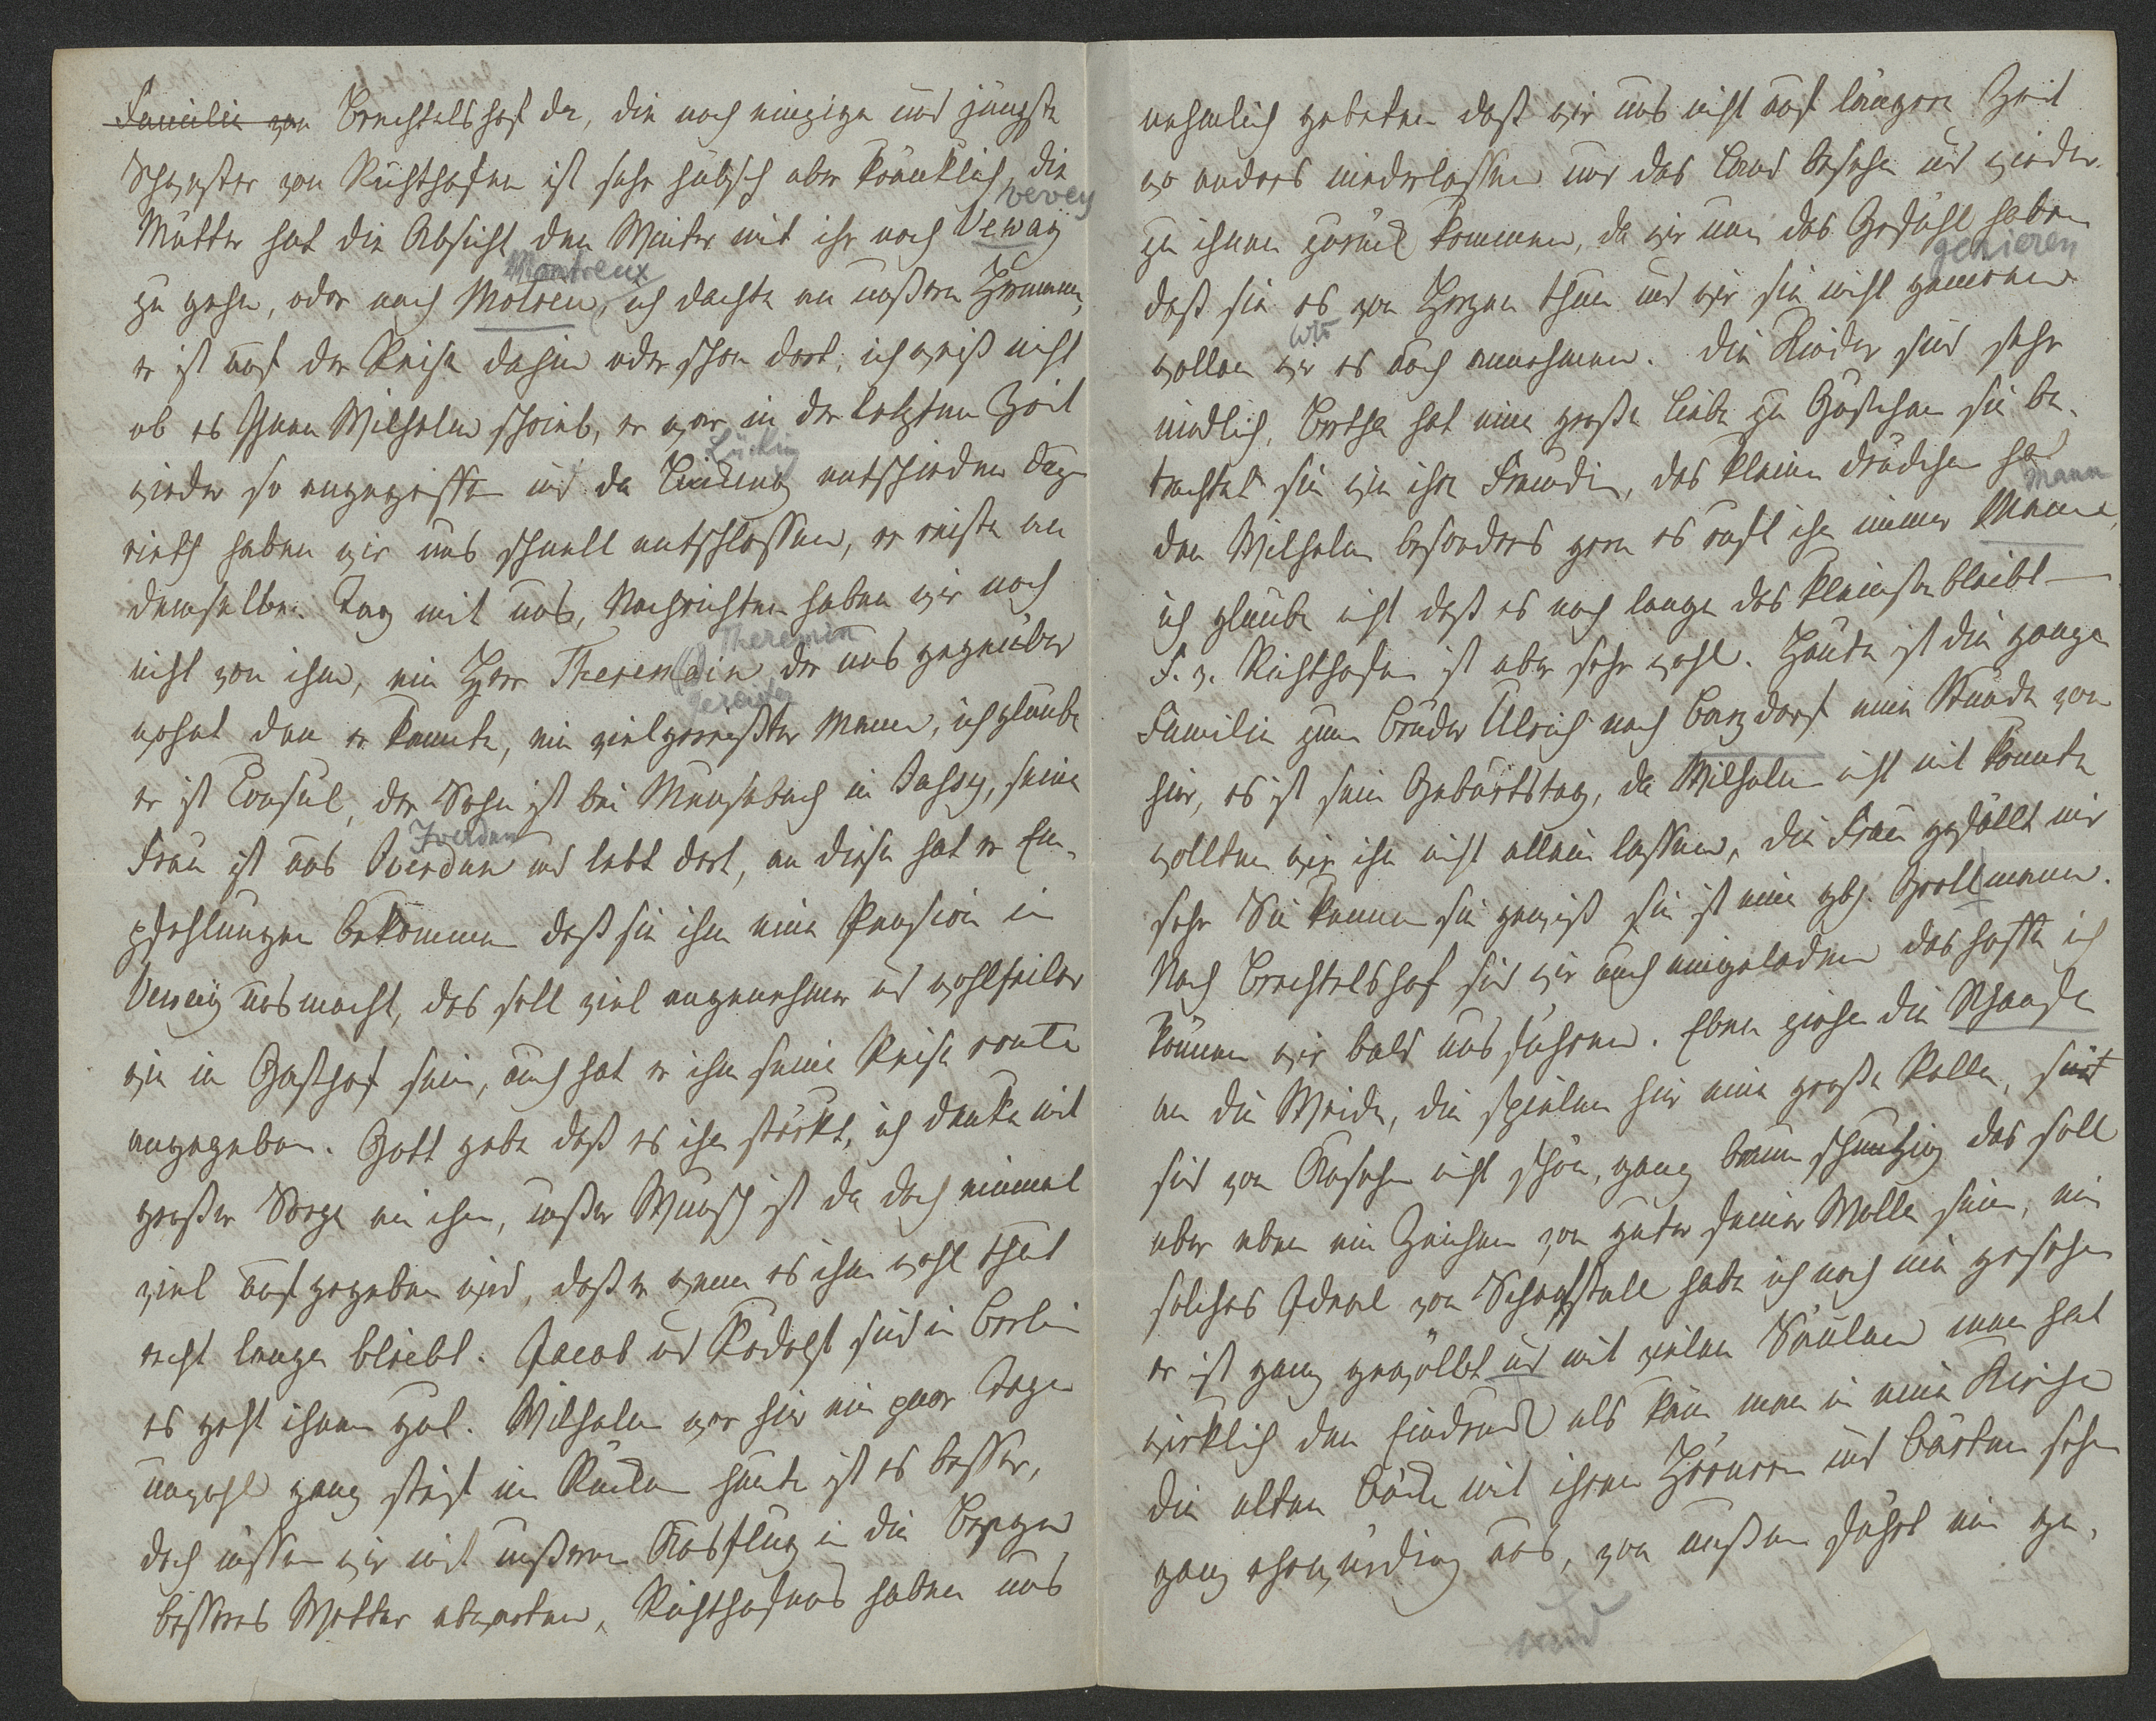 Familie von Brechtelshof da, die noch einzige und jüngste
Schwester von Richthofen ist sehr hübsch aber kränklich, die
vevey
Mutter hat die Absicht den Winter mit ihr nach Veway
Montreux
zu gehn, oder nach Motren, ich dachte an unßern Herrmann,
er ist auf der Reise dahin oder schon dort, ich weiß nicht
ob es Ihnen Wilhelm schrieb, er war in der letzten Zeit
Lücking
wieder so angegriffen und da entschieden dazu
rieth haben wir uns schnell entschlossen, er reiste an
demselben Tag mit uns, Nachrichten haben wir noch
Theremin
nicht von ihm, ein Herr Theremein der uns gegenüber
gereister
wohnt den er kannte, ein vielgereißter Mann, ich glaube
er ist Consul, der Sohn ist bei Meusebach in Jassy, seine
Iverdun
Frau ist aus Iverdun und lebt dort, an diese hat er Em-
pfehlungen bekommen daß sie ihm eine Pension in
Veway ausmacht, das soll viel angenehmer und wohlfeiler
wie in Gasthof sein, auch hat er ihm seine Reise route
angegeben. Gott gebe daß es ihn stärkt, ich denke mit
großer Sorge an ihn, unßer Wunsch ist da doch einmal
viel aufgegeben wird, daß er wenn es ihm wohl thut
recht lange bleibt. Jacob und Rudolf sind in Berlin
es geht ihnen gut. Wilhelm war hier ein paar Tage
unwohl ganz steif im Rücken heute ist es besser,
doch müssen wir mit unßerm Ausflug in die Berge
besseres Wetter abwarten, Richthofens haben uns
nehmlich gebeten daß wir uns nicht auf längere Zeit
wo anders niederlassen nur das Land besehn und wieder
zu ihnen zurück kommen, da wir nun das Gefühl haben
genieren
daß sie es von Herzen thun und wir sie nicht
wir
wollen wir es auch annehmen. Die Kinder sind sehr
niedlich, Bertha hat eine große Liebe zu Gustchen sie be-
trachtet sie wie ihre Freundin, das kleine Trudchen hat
Mann
den Wilhelm besonders gern es ruft ihn immer Manne,
ich glaube nicht daß es noch lange das kleinste bleibt —
F. v. Richthofen ist aber sehr wohl. Heute ist die ganze
Familie zum Bruder Ulrich nach Barzdorf eine Stunde von
hier, es ist sein Geburtstag, da Wilhelm nicht mit konnte
wollten wir ihn nicht allein lassen, die Frau gefällt mir
sehr Sie kennen sie gewiß sie ist eine geb. Grollmann.
Nach Brechtelshof sind wir auch eingeladen das hoffe ich
können wir bald ausführen. Eben ziehn die Schaafe
an die Weide, die spielen hier eine große Rolle,
sind von Ansehn nicht schön, ganz braun schmutzig das soll
aber eben ein Zeichen von guter feiner Wolle sein, ein
solches Ideal von Schaafstall habe ich noch nie gesehn
er ist ganz gewölbt und mit vielen Säulen man hat
wirklich den Eindruck als käm man in eine Kirche
die alten Böcke mit ihren Hörnern und Bärten sehn
ganz ehrwürdig aus, von außen führt ein ge-
und